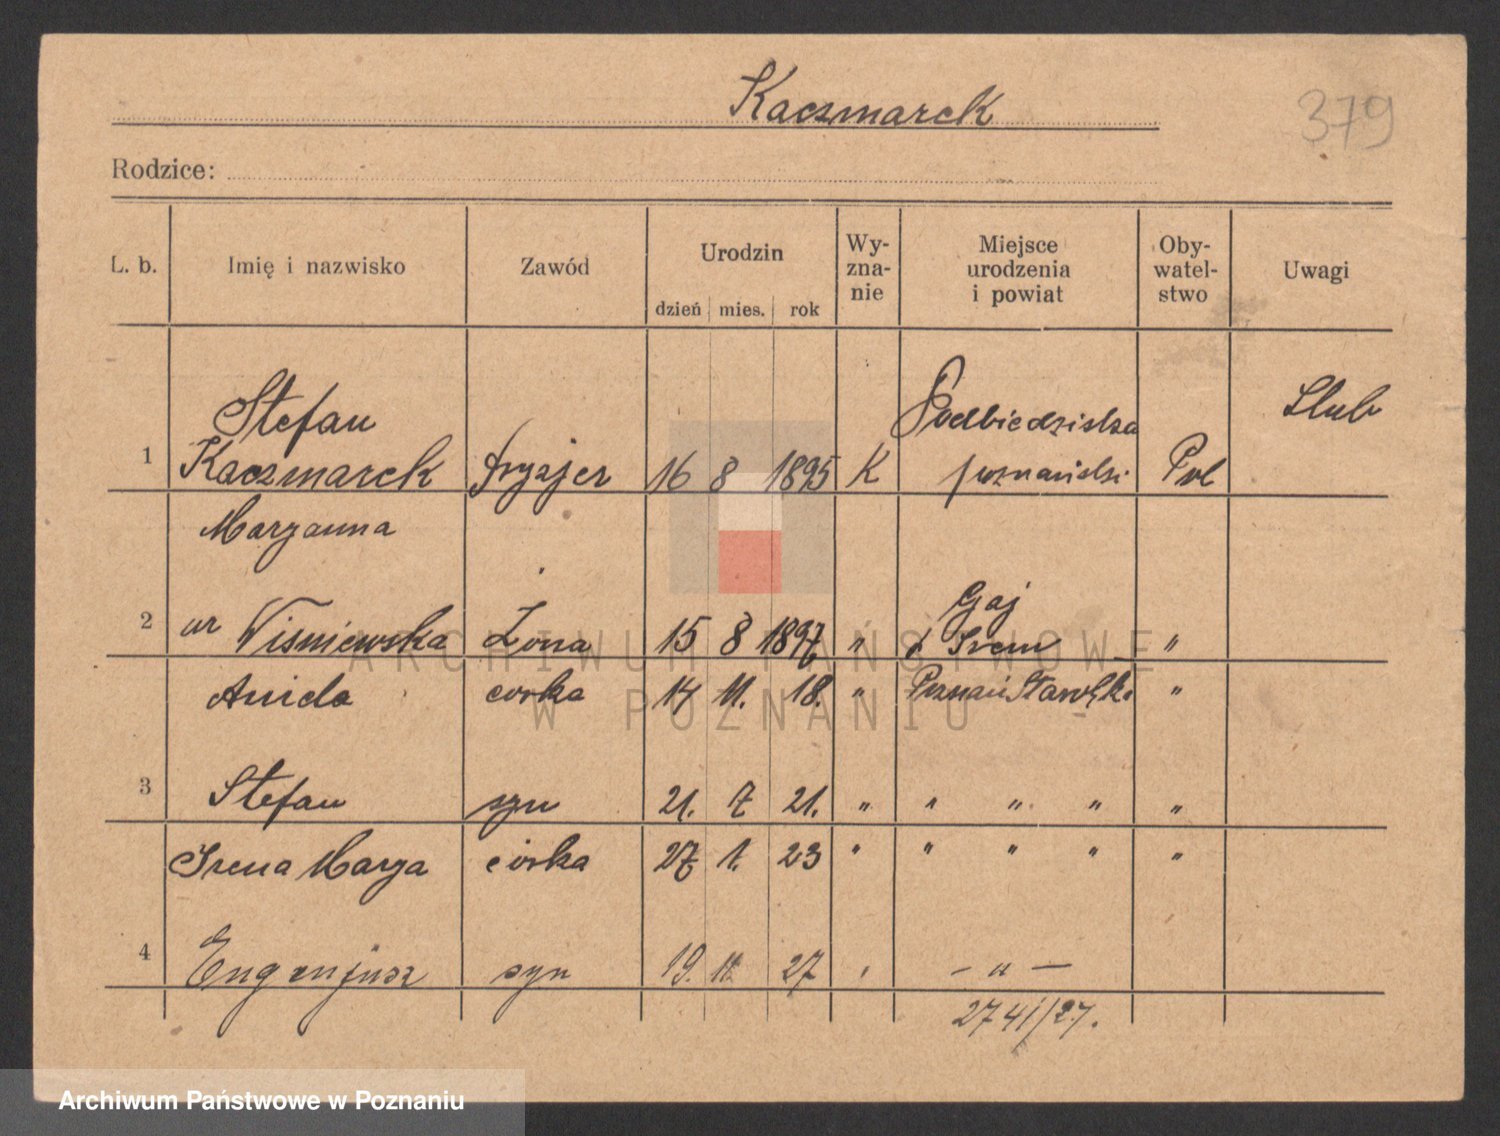 Kaczmarek
379
Rodzice:
L. b. Imię i nazwisko Zawód Urodzin dzień mies. rok Wy-zna-nie Miejsce urodzenia i powiat Oby-watel-stwo Uwagi
Stefan Ślub
1 Kaczmarek fryzjer 16 8 1895 K poznański Pol
Maryanna
Gaj
2 ur Wiśniewska Żona 15 8 1897 " Śrem "
córka 14 11. 18. " Poznań "
3 Stefan syn 21. 7 21. " " " " "
Irena Marya córka 27 1. 23 " " " " "
4 Eugenjusz syn 19. 27 - " -
2741/27.
ARCHIWUM PAŃSTWOWE
W POZNANIU
Archiwum Państwowe w Poznaniu